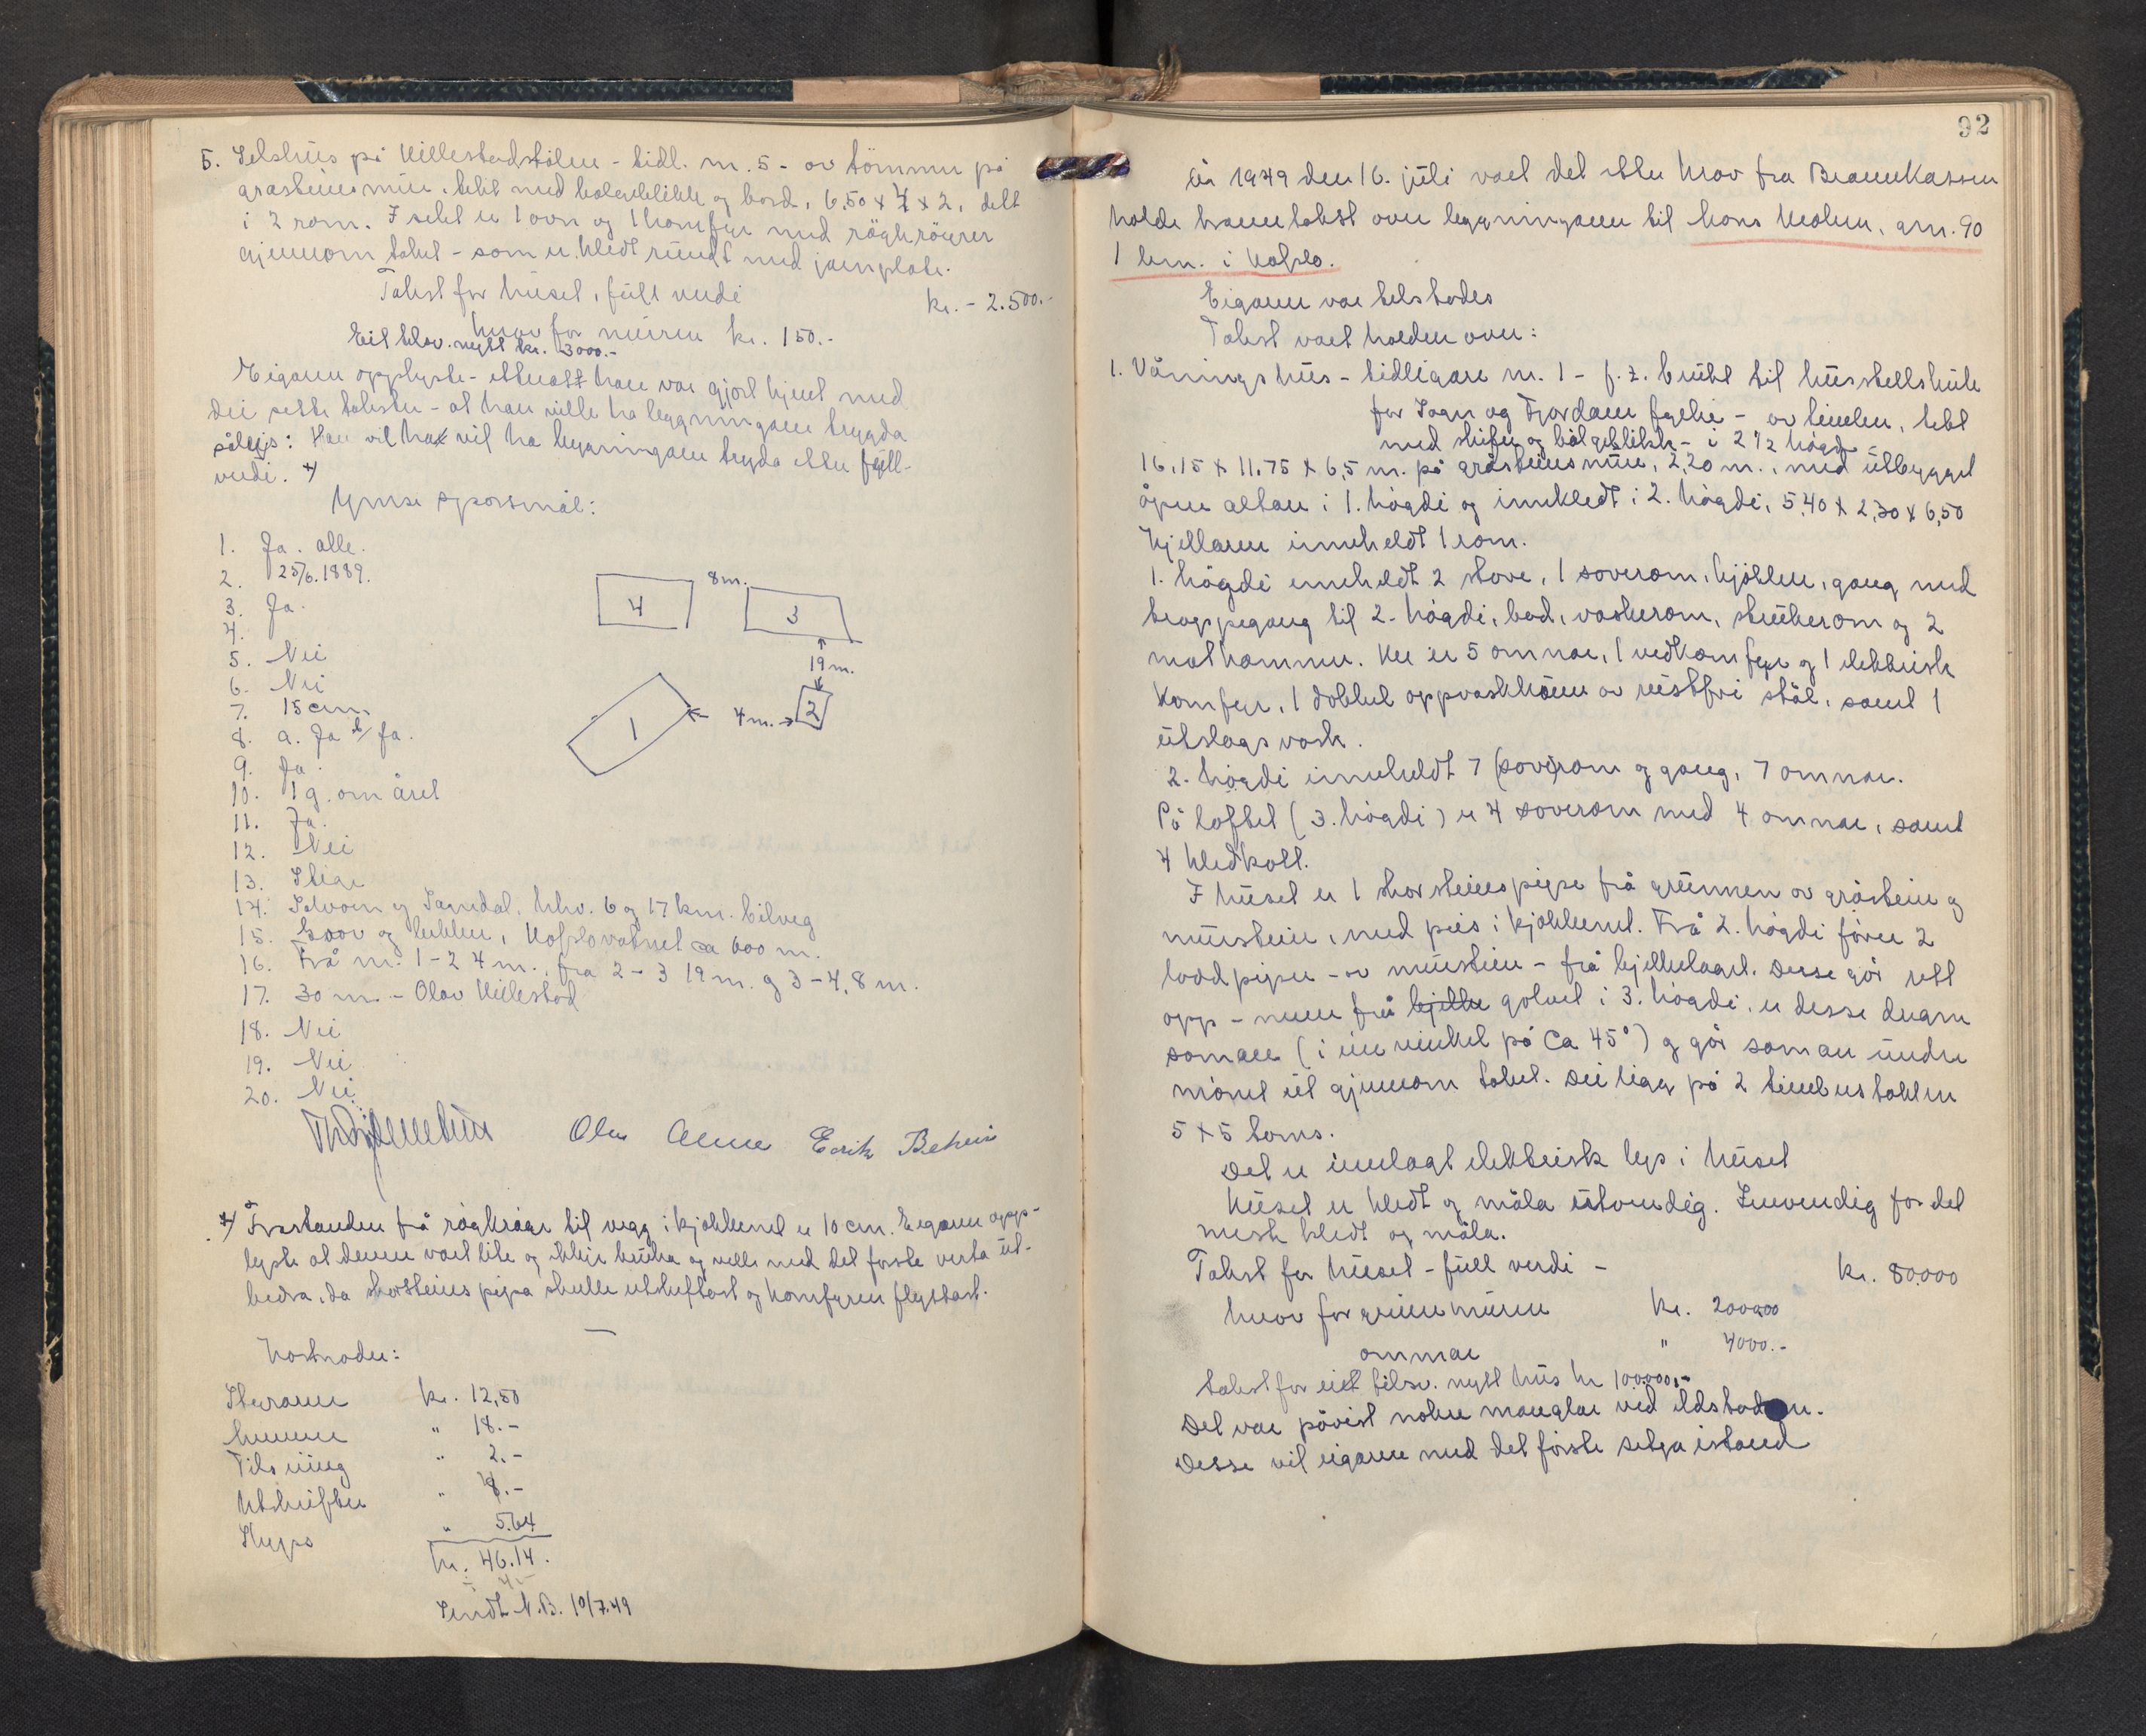 5. Selshus på Killestadstølen - tidl. nr. 5 - av tømmer på
gråsteinsmur, tekt med bølgeblikk og bord, 6,50 x 4 x 2, delt
i 2 rom. I selet er 1 ovn og 1 komfyr med røykrøyrer
gjennom taket - som er kledt rundt med jarnplate.
Takst for huset, full verdi kr. - 2.500.-
herav for muren kr. 150.-
Eit tilsv. nytt kr. 3000.-
Eigaren opplyste - etter at han var gjort kjent med
dei sette takster - at han ville ha bygningane trygda
såleis: Han vil ha bygningane trygda etter full-
verdi. *)
Ymse spørsmål:
1. Ja. alle.
2. 25/6.1889.
3. Ja.
4.
5. Nei
6. Nei
7. 15 cm.
8. a. Ja b/ Ja.
9. Ja.
10. 1 g. om året
11. Ja.
12. Nei
13. Stige
14. Solvorn og Sogndal, hhv. 6 og 17 km. bilveg
15. Hafslovatnet ca 600 m.
16. Frå nr. 1-2 4 m., fra 2-3 19 m. og 3-4, 8 m.
17. 30 m. - Olav Killestad
18. Nei
19. Nei
20. Nei
4
8 m.
3
19 m.
1
4 m.
2
Erik
*) Frastanden frå røykrøyr til vegg i kjøkkenet er 10 cm. Eigaren opp-
lyste at denne vart lite og ikkje bruka og ville med det første verta ut-
bedra, da skorsteinspipa skulle utskiftast og komfyren flyttast.
Kostnader:
Styraren kr. 12,50
" 18.-
" 2.-
Utskrifter " 8.-
Skyss " 5.64
kr. 46.14.
Sendt N.B. 10/7.49
92
År 1949 den 16. juli vart det etter krav fra Brannkassen
halde branntakst over bygningane til Hans Kroken, gnr. 90
1 brn. i Hafslo.
Eigaren var tilstades
Takst vart halden over:
1. Våningshus - tidligare nr. 1 - f.t. brukt til husstellskule
for Sogn og Fjordane fylke - av tømmer, tekt
med skifer og bølgeblikk - i 2 1/2 høgd
16,15 x 11,75 x 6,5 m. på gråsteinsmur, 2,20 m., med utbygget
åpen altan i 1. høgdi og innkledt i 2. høgdi, 5,40 x 2,30 x 6,50
Kjellaren inneheldt 1 rom.
1. høgdi inneheldt 2 stove, 1 soverom, kjøkken, gang med
trappegang til 2. høgdi, bad, vaskerom, stukerom og 2
matkammer. Her er 5 omnar, 1 vedkomfyr og 1 elektrisk
komfyr, 1 dobbel oppvaskkum av rustfri stål, samt 1
utslagsvask.
2. høgdi inneheldt 7 (sove)rom og gang, 7 omnar.
På loftet (3. høgdi) er 4 soverom med 4 omnar, samt
4 kledkott.
I huset er 1 skorsteinspipe frå grunnen av gråstein og
murstein, med peis i kjøkkenet. Frå 2. høgdi fører 2
piper - av murstein - frå bjelkelaget. Desse går rett
opp - men frå bjelke golvet i 3. høgdi, er desse dregne
saman (i ein vinkel på ca 45°) og går saman under
mønet ut gjennom taket. Dei ligg på 2 timberstokker
5 x 5 toms.
Det er innlagt elektrisk lys i huset
Huset er kledt og måla utvendig. Innvendig for det
mesta kledt og måla.
Takst for huset - full verdi - kr. 80.000
herav for grunnmuren kr. 2000.00
omnar " 4000.-
takst for eit tilsv. nytt hus kr 100.000,-
Det var påvist nokre manglar ved eldstadane.
Desse vil eigaren med det første setja istand